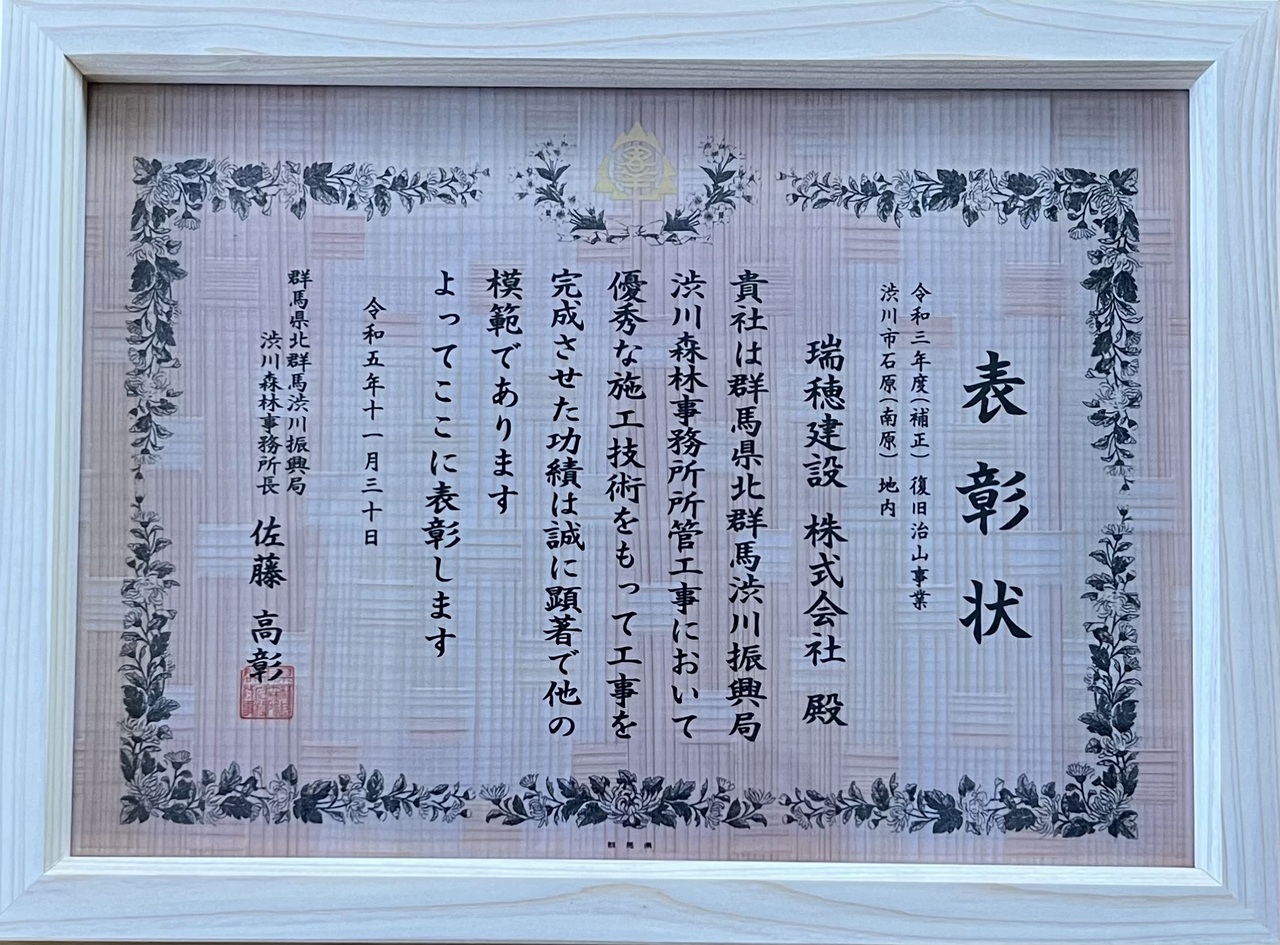 表彰状
令和三年度(補正) 復旧治山事業
渋川市石原(南原) 地内
瑞穂建設 株式会社 殿
貴社は群馬県北群馬渋川振興局
渋川森林事務所所管工事において
優秀な施工技術をもって工事を
完成させた功績は誠に顕著で他の
模範であります
よってここに表彰します
令和五年十一月三十日
群馬県北群馬渋川振興局
渋川森林事務所長 佐藤 高彰
群馬県